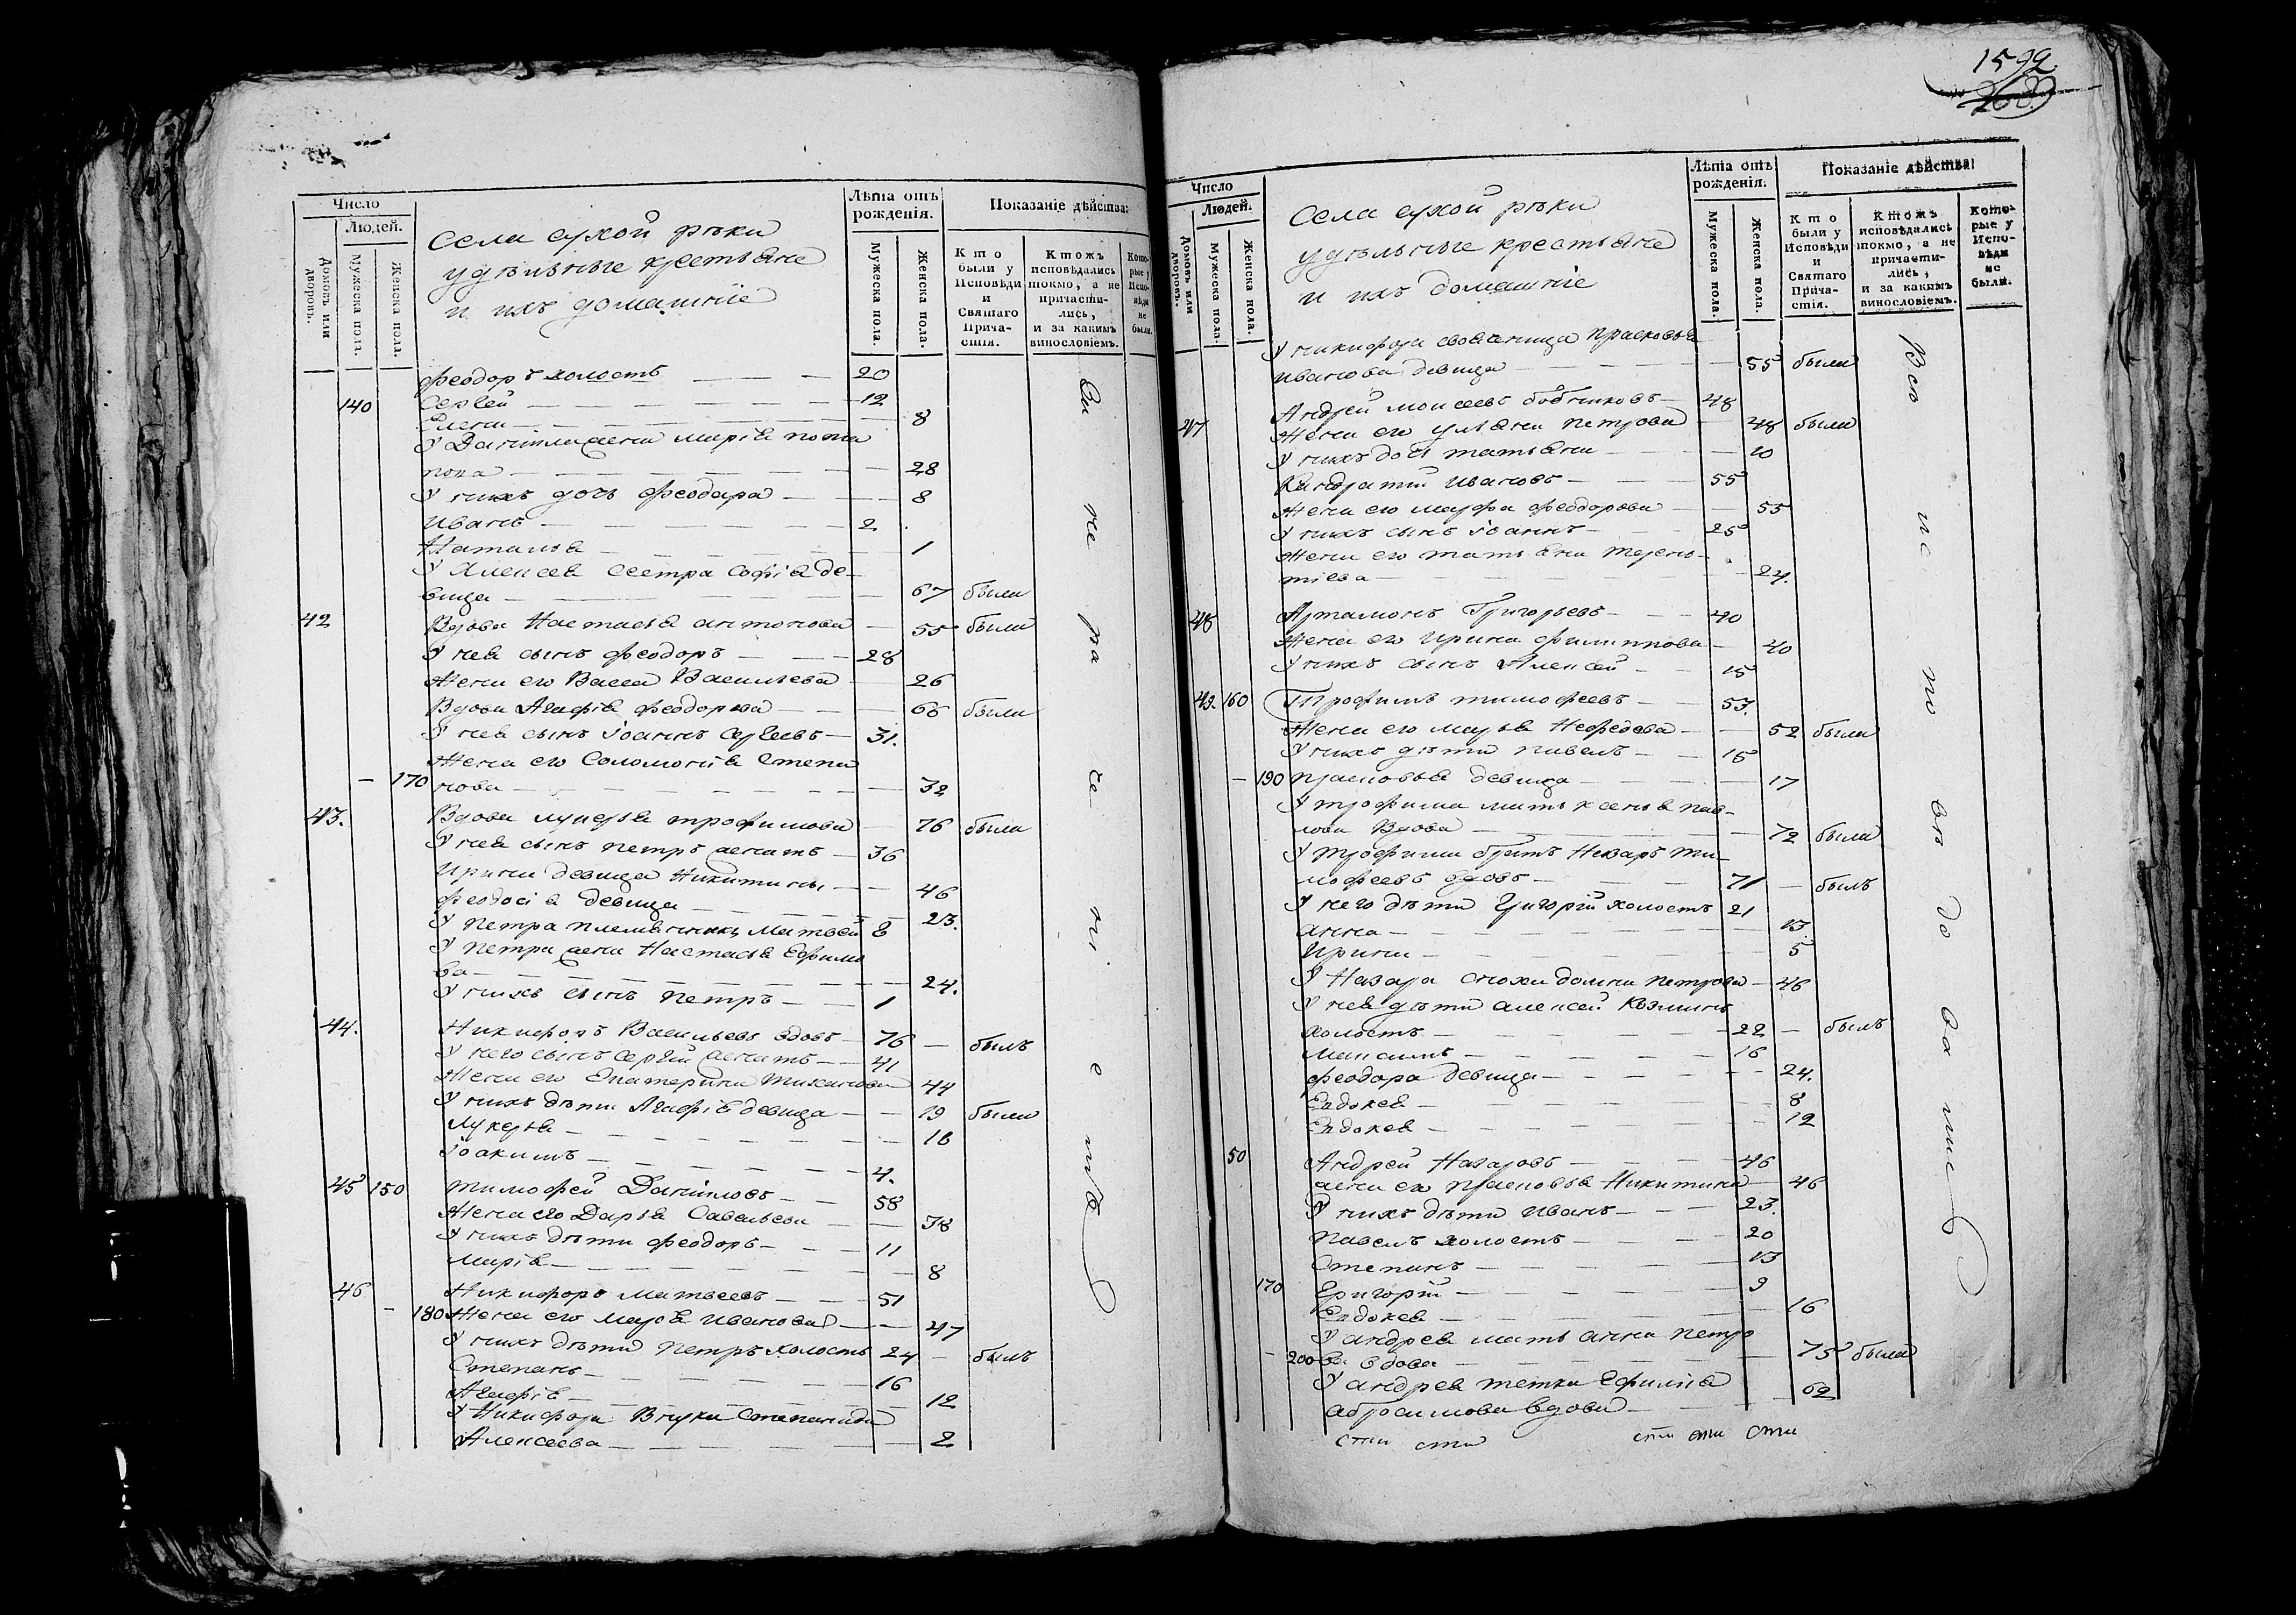 Число
Людей.
Домовъ или дворовъ.
Мужеска пола.
Женска пола.
Села сухой рѣки
удѣльные крестьяне
и ихъ домашніе
Лѣта отъ рожденія.
Мужеска пола.
Женска пола.
Показаніе дѣйства:
Кто были у Исповѣди и Святаго Прича- стія.
Ктожъ исповѣдались токмо, а не причасти- лись, и за какимъ винословіемъ.
Кото- рые у Испо- вѣди не были.
Феодоръ холостъ 20
140 Сергей 12
Елена 8
У Даніила жена Марія пота
пова 28
У нихъ дочь Феодора 8
Иванъ 2
Наталья 1
У Алексея сестра Софія де-
вица 67 были
42 Вдова Настасья антонова 55 были
У нея сынъ Феодоръ 28
Жена его Васса Васильева 26
Вдова Агафія Феодорова 66 были
У нея сынъ Іоаннъ Сергеевъ 31.
Жена его Соломонія Степа
170 нова 32
43. Вдова лукерья трофимова 76 была
У нея сынъ петръ женатъ 36
Ирина девица Никитина 46
Феодосія девица 23.
У петра племянникъ Матвей 8
У петра жена Настасья Ефимо
ва 24.
У нихъ сынъ петръ 1
44. Никифоръ Васильевъ вдовъ 76 былъ
У него сынъ сергій женатъ 41
Жена его Екатерина Тиханова 44
У нихъ дѣти Агафія девица 19 были
Лукерья 16
Іоакимъ 4.
45 150 тимофей Даніиловъ 58
Жена его Дарья Савельева 38
У нихъ дѣти феодоръ 11
Марія 8
46 Никифоръ Матвеевъ 51
180 Жена его Марья Иванова 47
У нихъ дѣти петръ холостъ 24 былъ
Степанъ 16
Агафія 12
У Никифора Внука Степанида
Алексеева 2
1592
Число
Людей.
Домовъ или дворовъ.
Мужеска пола.
Женска пола.
Села сухой рѣки
удѣльные крестьяне
и ихъ домашніе
Лѣта отъ рожденія.
Мужеска пола.
Женска пола.
Показаніе дѣйства:
Кто были у Исповѣди и Святаго Прича- стія.
Ктожъ исповѣдались токмо, а не причасти- лись, и за какимъ винословіемъ.
Кото- рые у Испо- вѣди не были.
У никифора своячница прасковья
иванова девица 55 были
Андрей моисеевъ 48
47 Жена его ульяна петрова 48 были
У нихъ дочь татьяна 10
Кандратій Ивановъ 55
Жена его марфа феодорова 55
У нихъ сынъ іоаннъ 25
Жена его татьяна терень-
тіева 24.
48 Артамонъ Григорьевъ 40
Жена его Ирина филиппова 40
У нихъ сынъ Алексей 15
49. 160 Трофимъ тимофеевъ 53.
Жена его марья Нефедова 52 были
У нихъ дѣти павелъ 15
190 прасковья девица 17
У трофима мать ксенья пав-
лова Вдова 72 была
У трофима братъ Назаръ ти-
мофеевъ вдовъ 71 былъ
У него дѣти Григорій холостъ 21
анна 13.
Ирина 5
У Назара сноха домна петрова 46
У нея дѣти алексей Козминъ
холостъ 22 былъ
Максимъ 16
феодора девица 24.
Евдокея 8
Евдокея 12
50 Андрей Назаровъ 46
жена его прасковья Никитина 46
У нихъ дѣти Иванъ 23.
павелъ холостъ 20
Степанъ 13
170 Григорій 9
Евдокея 16
У андрея мать анна петро
200 ва вдова 75 была
У андрея тетка Ефимія
абросимова вдова 62